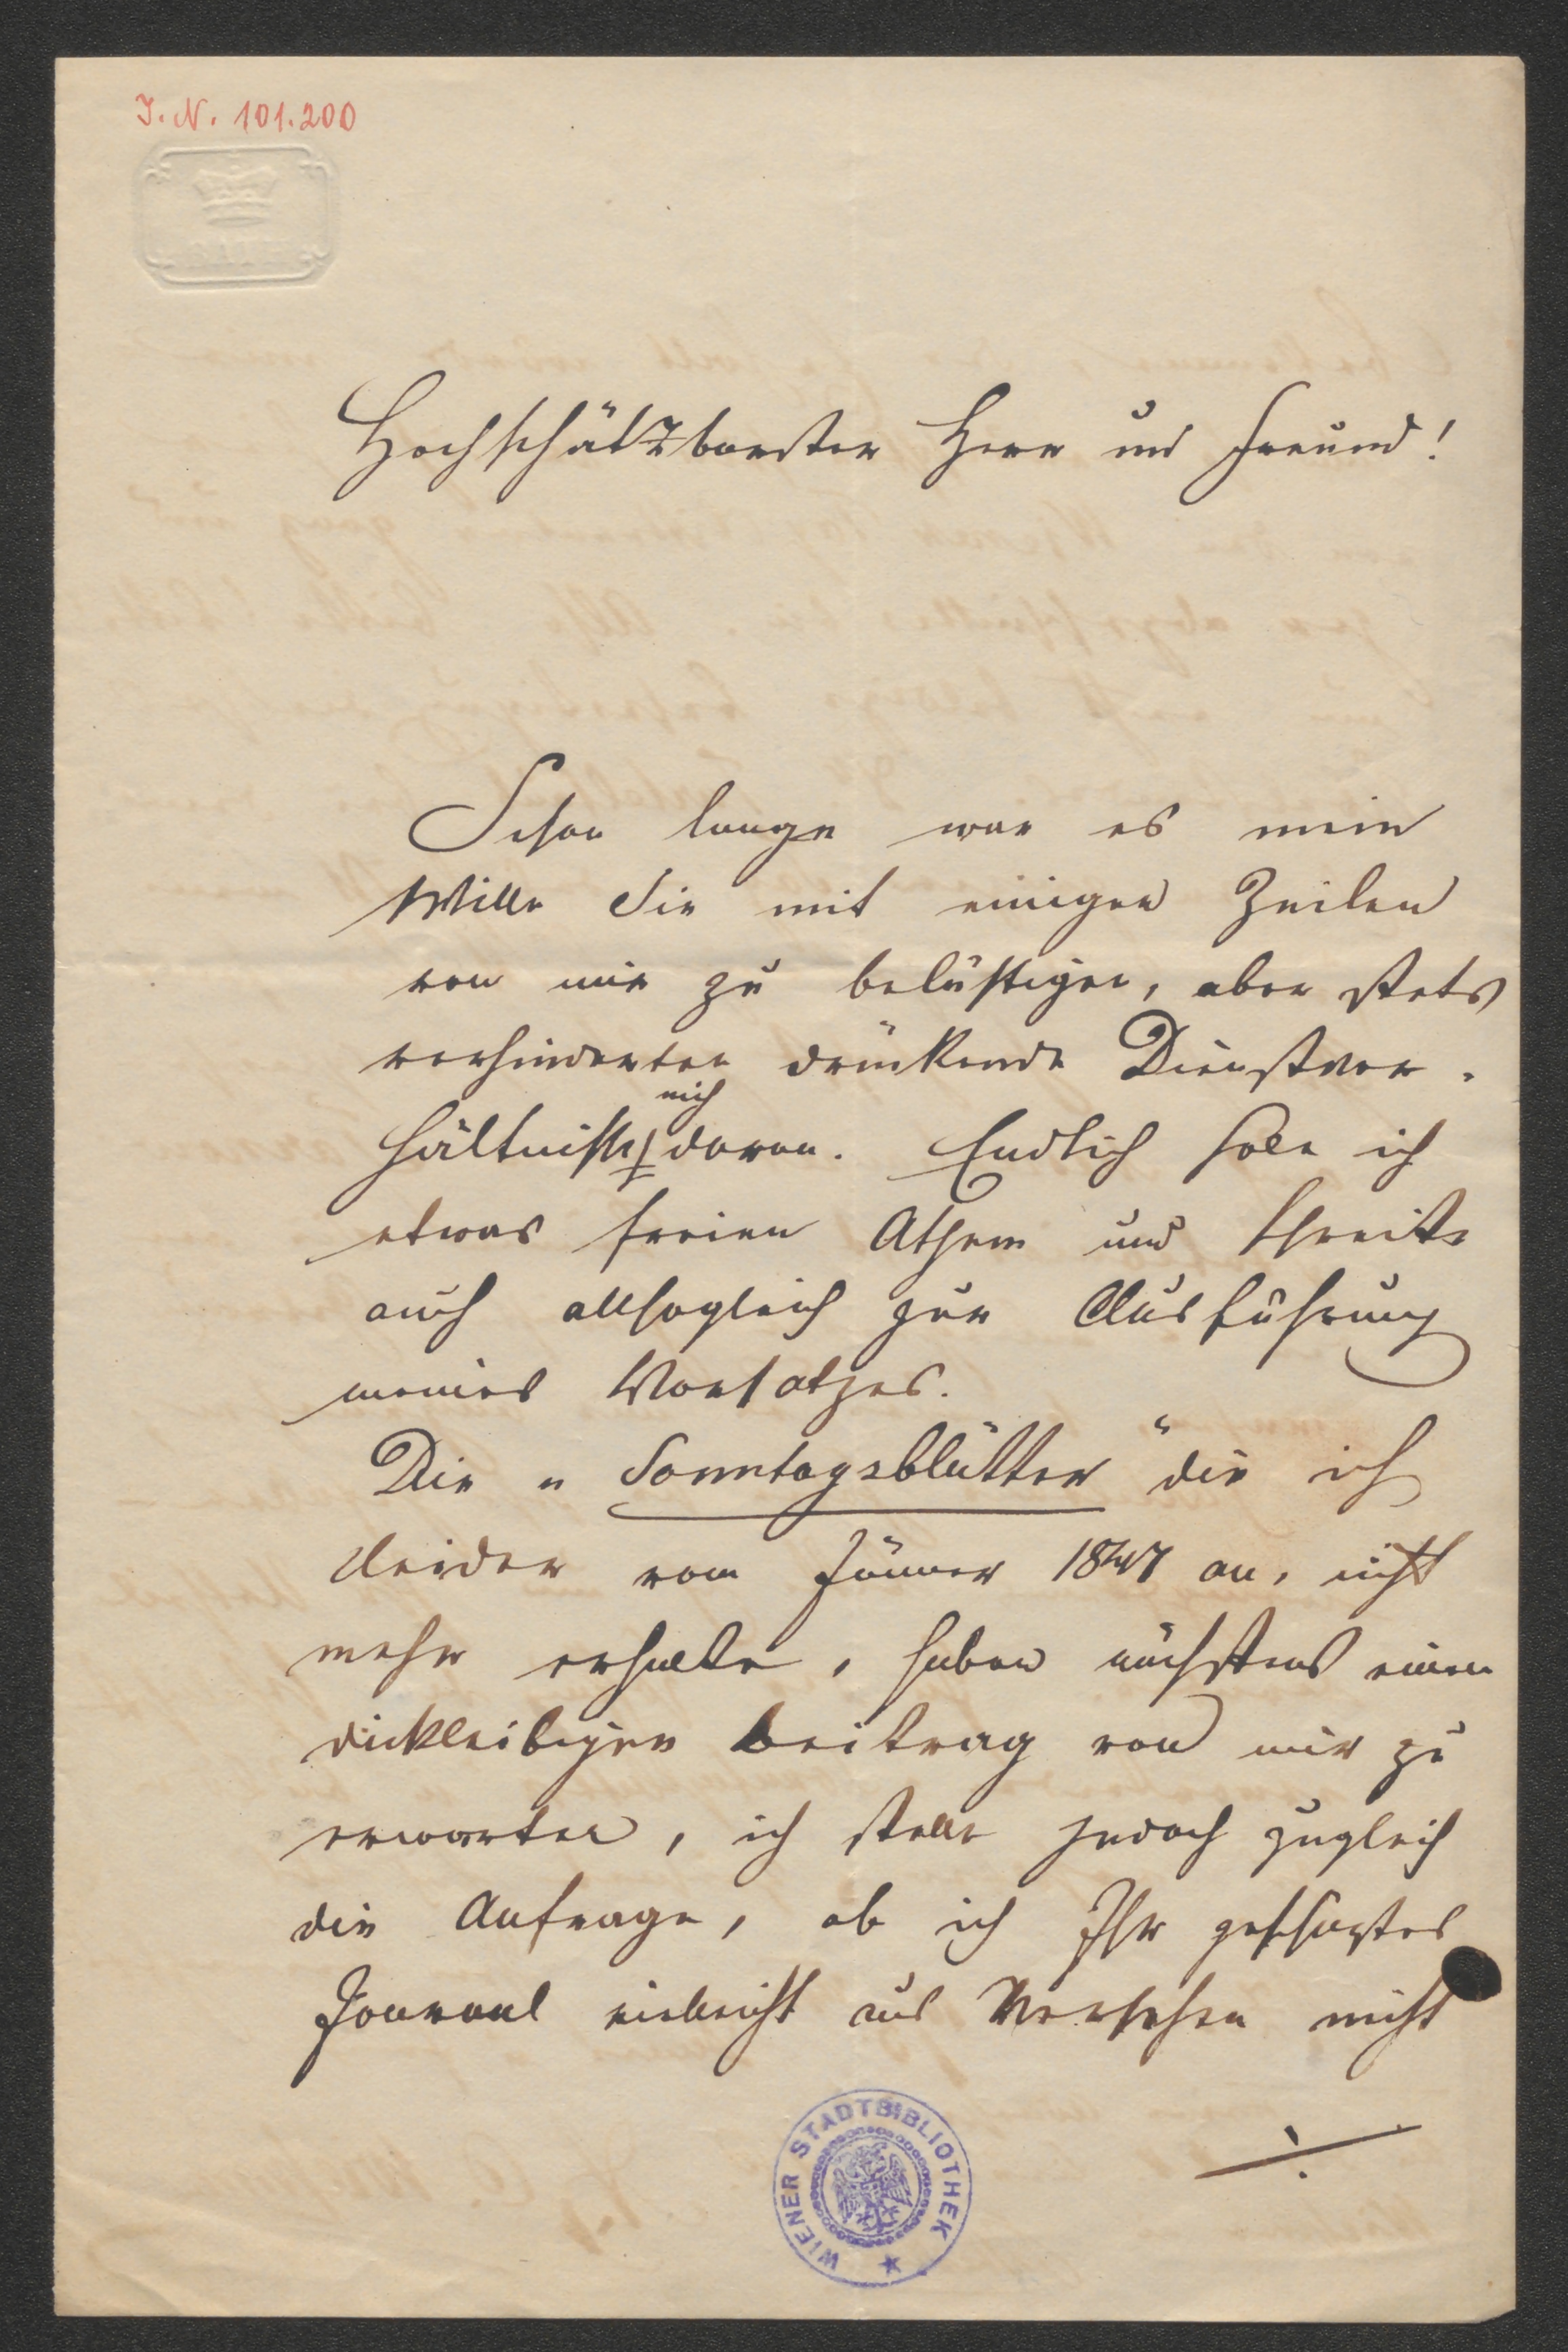 I. N. 101.200
Hochschätzbarster Herr und Freund!
Schon lange war es mein
Wille Sie mit einigen Zeilen
von mir zu belästigen, aber stets
verhinderten drückende Dienstver-
mich
hältnisse daran. Endlich hole ich
etwas freien Athem und schreite
auch allsogleich zur Ausführung
meines Vorsatzes.
Die „Sonntagsblätter“ die ich
leider vom Jänner 1847 an, nicht
mehr erhalte, haben nächstens einen
dickleibigen Beitrag von mir zu
erwarten, ich stelle jedoch zugleich
die Anfrage, ob ich Ihr geschaztes
Journal vieleicht aus Versehen nicht
WIENER STADTBIBLIOTHEK